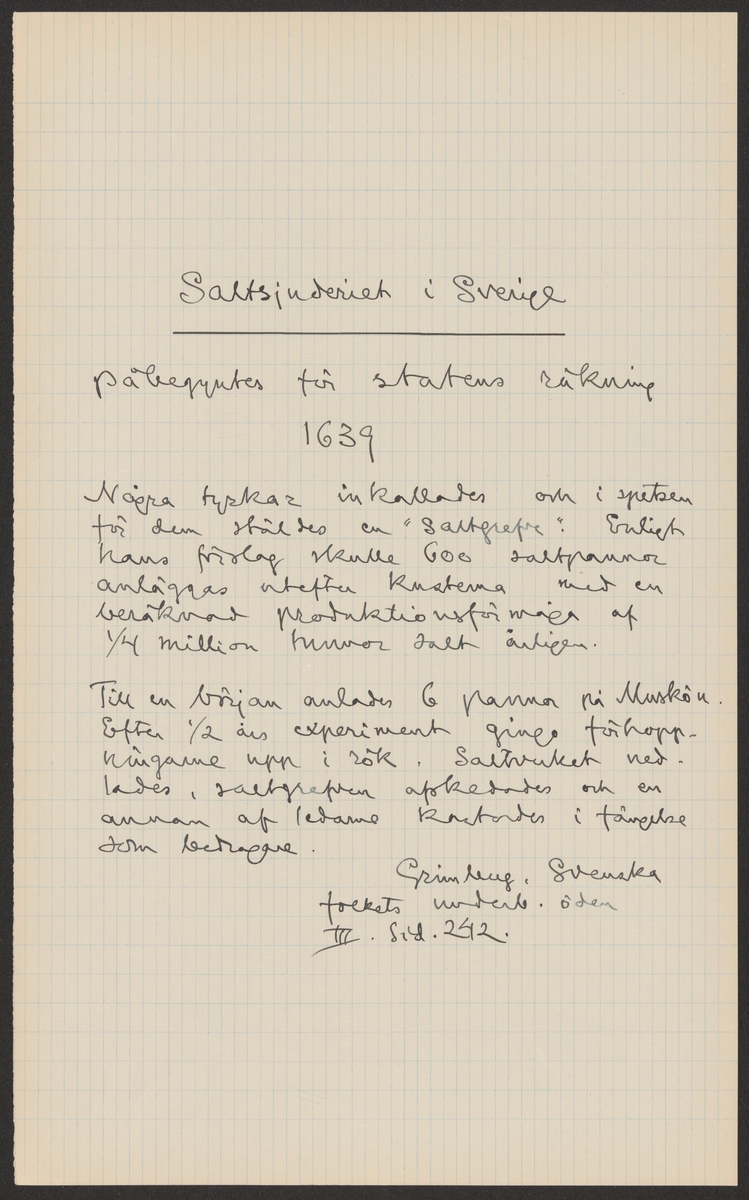 Saltsjuderiet i Sverige
påbegyntes för statens räkning
1639
Några tyskar inkallades och i spetsen
för dem stäldes en "Saltgrefve". Enligt
hans förslag skulle 600 saltpannor
anläggas utefter kusterna med en
beräknad produktionsförmåga af
1/4 million tunnor salt årligen.
Till en början anlades 6 pannor på Muskön.
Efter 1/2 års experiment gingo förhopp-
ningarne upp i rök. Saltverket ned-
lades, saltgrefven afskedades och en
annan af ledarne kastades i fängelse
som bedragare.
Grimberg, Svenska
folkets underb. öden
III. Sid. 242.